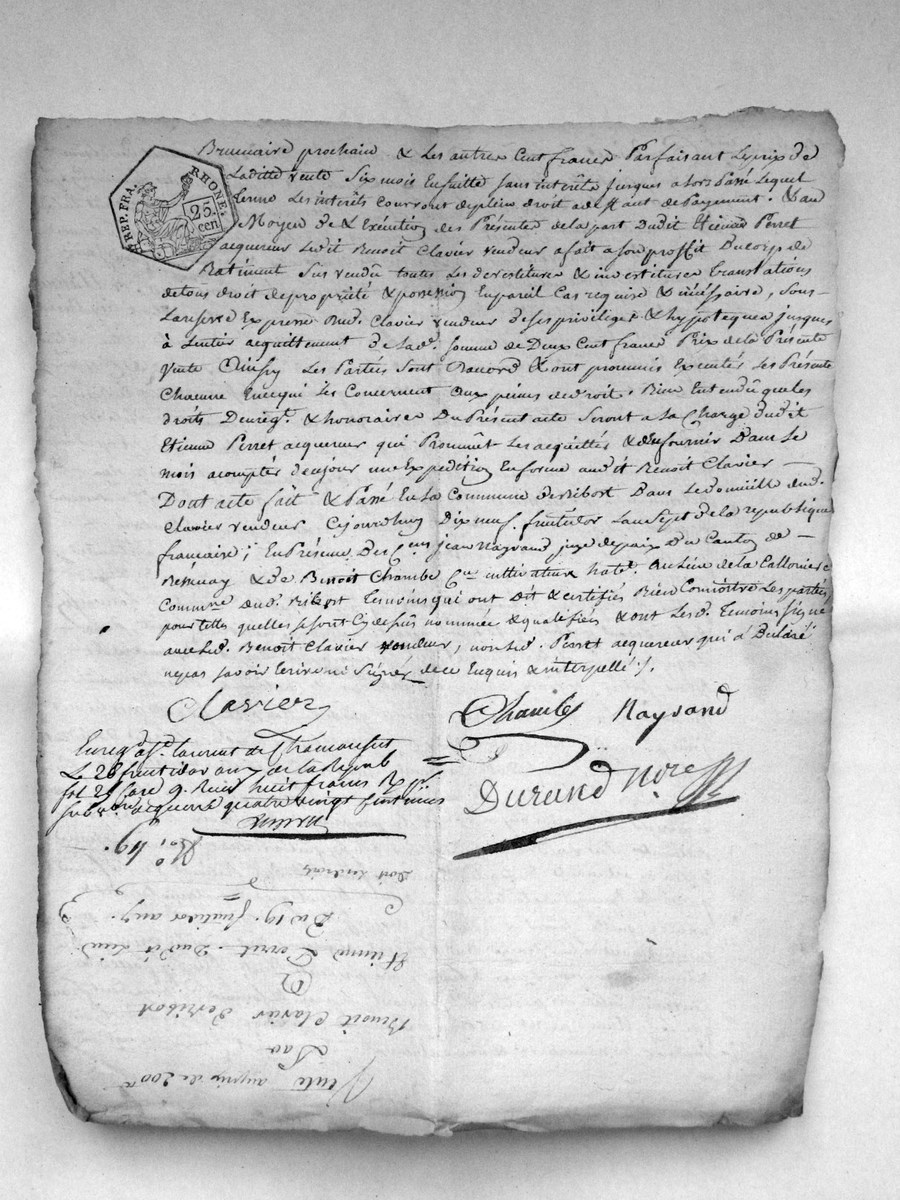 REP. FRA. RHONE. 25 cen
Brumaire prochain & Les autres Cent francs Parfaisant Le prix de
Laditte Vente Six mois Ensuitte sans interêts jusques alors Passé Lequel
terme Les interêts Courront de plein droit a deffaut de Payement. & au
Moyen de & Exécution des Présentes de la part Dudit Etienne Perret
acquereur Ledit Benoit Clavier vendeur a fait a son proffit Du corps de
Batiment Sus vendu toutes Les devestitures & investitures translations
de tous droit de propriété & possession En pareil Cas requise & nécéssaire, Sous
La reserve Expresse Dud. Clavier vendeur de ses privileges & hypoteques jusques
à Lentier acquittement de Lad. somme de Deux Cent francs Prix de la Présente
Vente Ainsy Les Parties Sont D'accord & ont promis Executés Les Présente
Chacune En ce qui Les Concernent aux peines de droit. Bien Entendû que les
droits D'enregt. & honoraires Du Présent acte Seront a La Charge dudit
Etienne Perret acquereur qui Promêt Les acquittés & de fournir Dans Le
mois a compter de ce jour une Expedition En forme audit Benoit Clavier —
Dont acte fait & Passé En La Commune de Ribost Dans Le domicille dud.
Clavier vendeur Cejourdhuy Dix neuf fructidor L'an Sept de la republique
francaise; En Présence Des Cens jean Naysand juge de paix Du Canton de —
Bessenay & de Benoit Chambe Cen cultivateur habt. Au Lieu de la Callonière
Commune dud. Ribost Temoins qui ont dit & certifiés Bien Connoitre Les parties
pour telles quelles sont Cy depûs nommées & qualifiées & ont Lesd. temoins signé
avec Led. Benoit Clavier vendeur, non Led. Perret acquereur qui a Déclaré
ne pas savoir Ecrire ni Signer de ce Enquis & interpellé ./.
Clavier
Chambe Naysand
Durand Nore
Enregé a St. Laurent de Chamousset
Le 26 fructidor an 7 de la Repub
fol 29 Case 9. Reçu huit francs
acquereur quatre vingt centimes
No. 119.
Du 19. fructidor an 7.
Etienne Perret Dudit Lieu
A
Benoit Clavier De Ribost
Par
Vente au prix de 200 fr